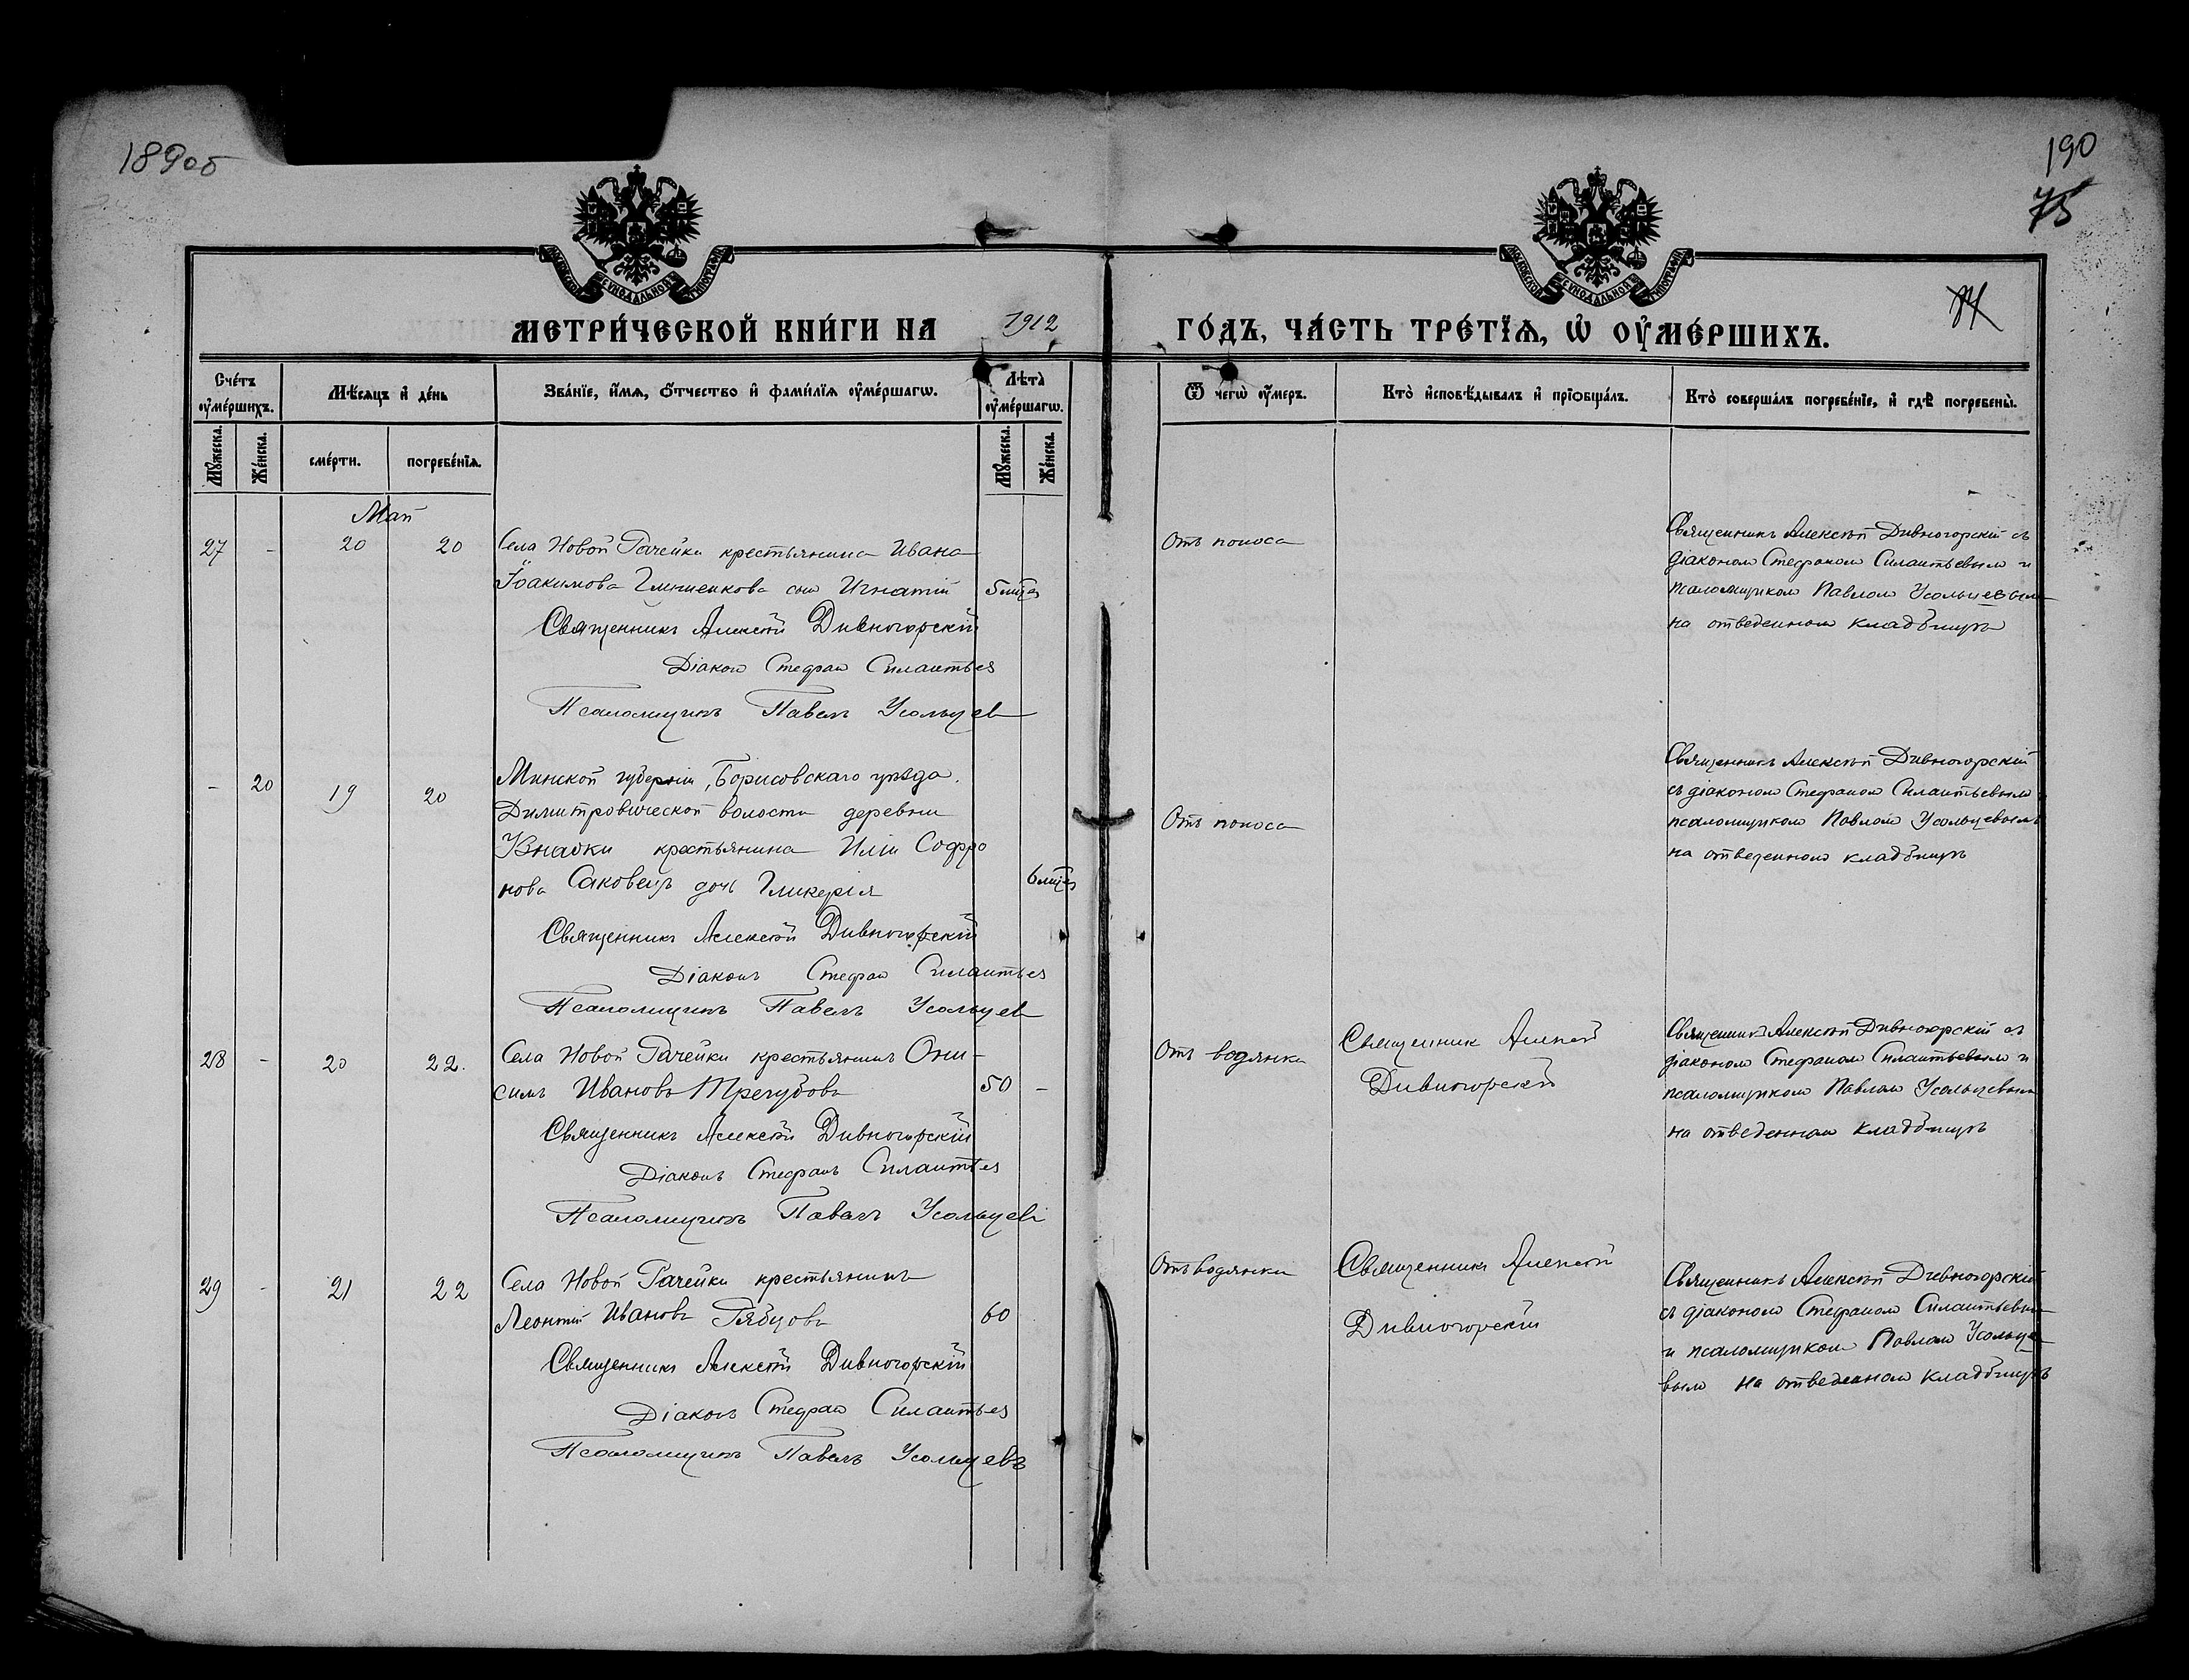 189об
190
75
74
МОСКОВСКОЙ СѴНОДАЛЬНОЙ ТИПОГРАФІИ
МОСКОВСКОЙ СѴНОДАЛЬНОЙ ТИПОГРАФІИ
МЕТРИ́ЧЕСКОЙ КНИ́ГИ НА 1912 ГО́ДЪ, ЧА́СТЬ ТРЕ́ТЇѦ, Ѡ҆ ОУ҆МЕ́РШИХЪ.
Сче́тъ оу҆ме́ршихъ.
Мѣ́сѧцъ и҆ де́нь
Зва́нїе, и҆́мѧ, ѻ҆́тчество и҆ фами́лїѧ оу҆ме́ршагѡ.
Лѣ́та̀ оу҆ме́ршагѡ.
Ѿ чегѡ̀ оу҆́меръ.
Кто̀ и҆сповѣ́дывалъ и҆ прїѻбща́лъ.
Кто̀ соверша́лъ погребе́нїе, и҆ гдѣ̀ погребены̀.
Мꙋ́жеска. Же́нска. сме́рти. погребе́нїѧ. Мꙋ́жеска. Же́нска.
Май
27 - 20 20 Села Новой Рачейки крестьянина Ивана
Іоакимова сын Игнатій 5 мцев
Священникъ Алексѣй Дивногорскій
Діакон Стефан Силантьев
Псаломщикъ Павелъ Усольцев
Отъ поноса
Священникъ Алексѣй Дивногорскій съ
діаконом Стефаном Силантьевым и
псаломщиком Павлом Усольцевым
на отведенном кладбищѣ
- 20 19 20 Минской губерніи, Борисовскаго уѣзда
Димитровической волости деревни
крестьянина Иліи Софро
нова Саковецъ дочь Гликерія 6 мцев
Священникъ Алексѣй Дивногорскій
Діаконъ Стефан Силантьев
Псаломщикъ Павелъ Усольцев
Отъ поноса
Священникъ Алексѣй Дивногорскій
съ діаконом Стефаном Силантьевым и
псаломщиком Павлом Усольцевымъ
на отведенном кладбищѣ
28 - 20 22. Села Новой Рачейки крестьянинъ Они-
симъ Ивановъ Трегубовъ 50 -
Священникъ Алексѣй Дивногорскій
Діаконъ Стефанъ Силантьев
Псаломщикъ Павелъ Усольцев
Отъ водянки
Священник Алексѣй
Дивногорскій
Священникъ Алексѣй Дивногорскій съ
діаконом Стефаном Силантьевым и
псаломщиком Павлом Усольцевым
на отведенном кладбищѣ
29 - 21 22 Села Новой Рачейки крестьянинъ
Леонтій Ивановъ Рябцовъ 60
Священникъ Алексѣй Дивногорскій
Діаконъ Стефан Силантьев
Псаломщикъ Павелъ Усольцевъ
Отъ водянки
Священникъ Алексѣй
Дивногорскій
Священникъ Алексѣй Дивногорскій
съ діаконом Стефаном Силантьевым
и псаломщиком Павлом Усольце-
вым на отведенном кладбищѣ